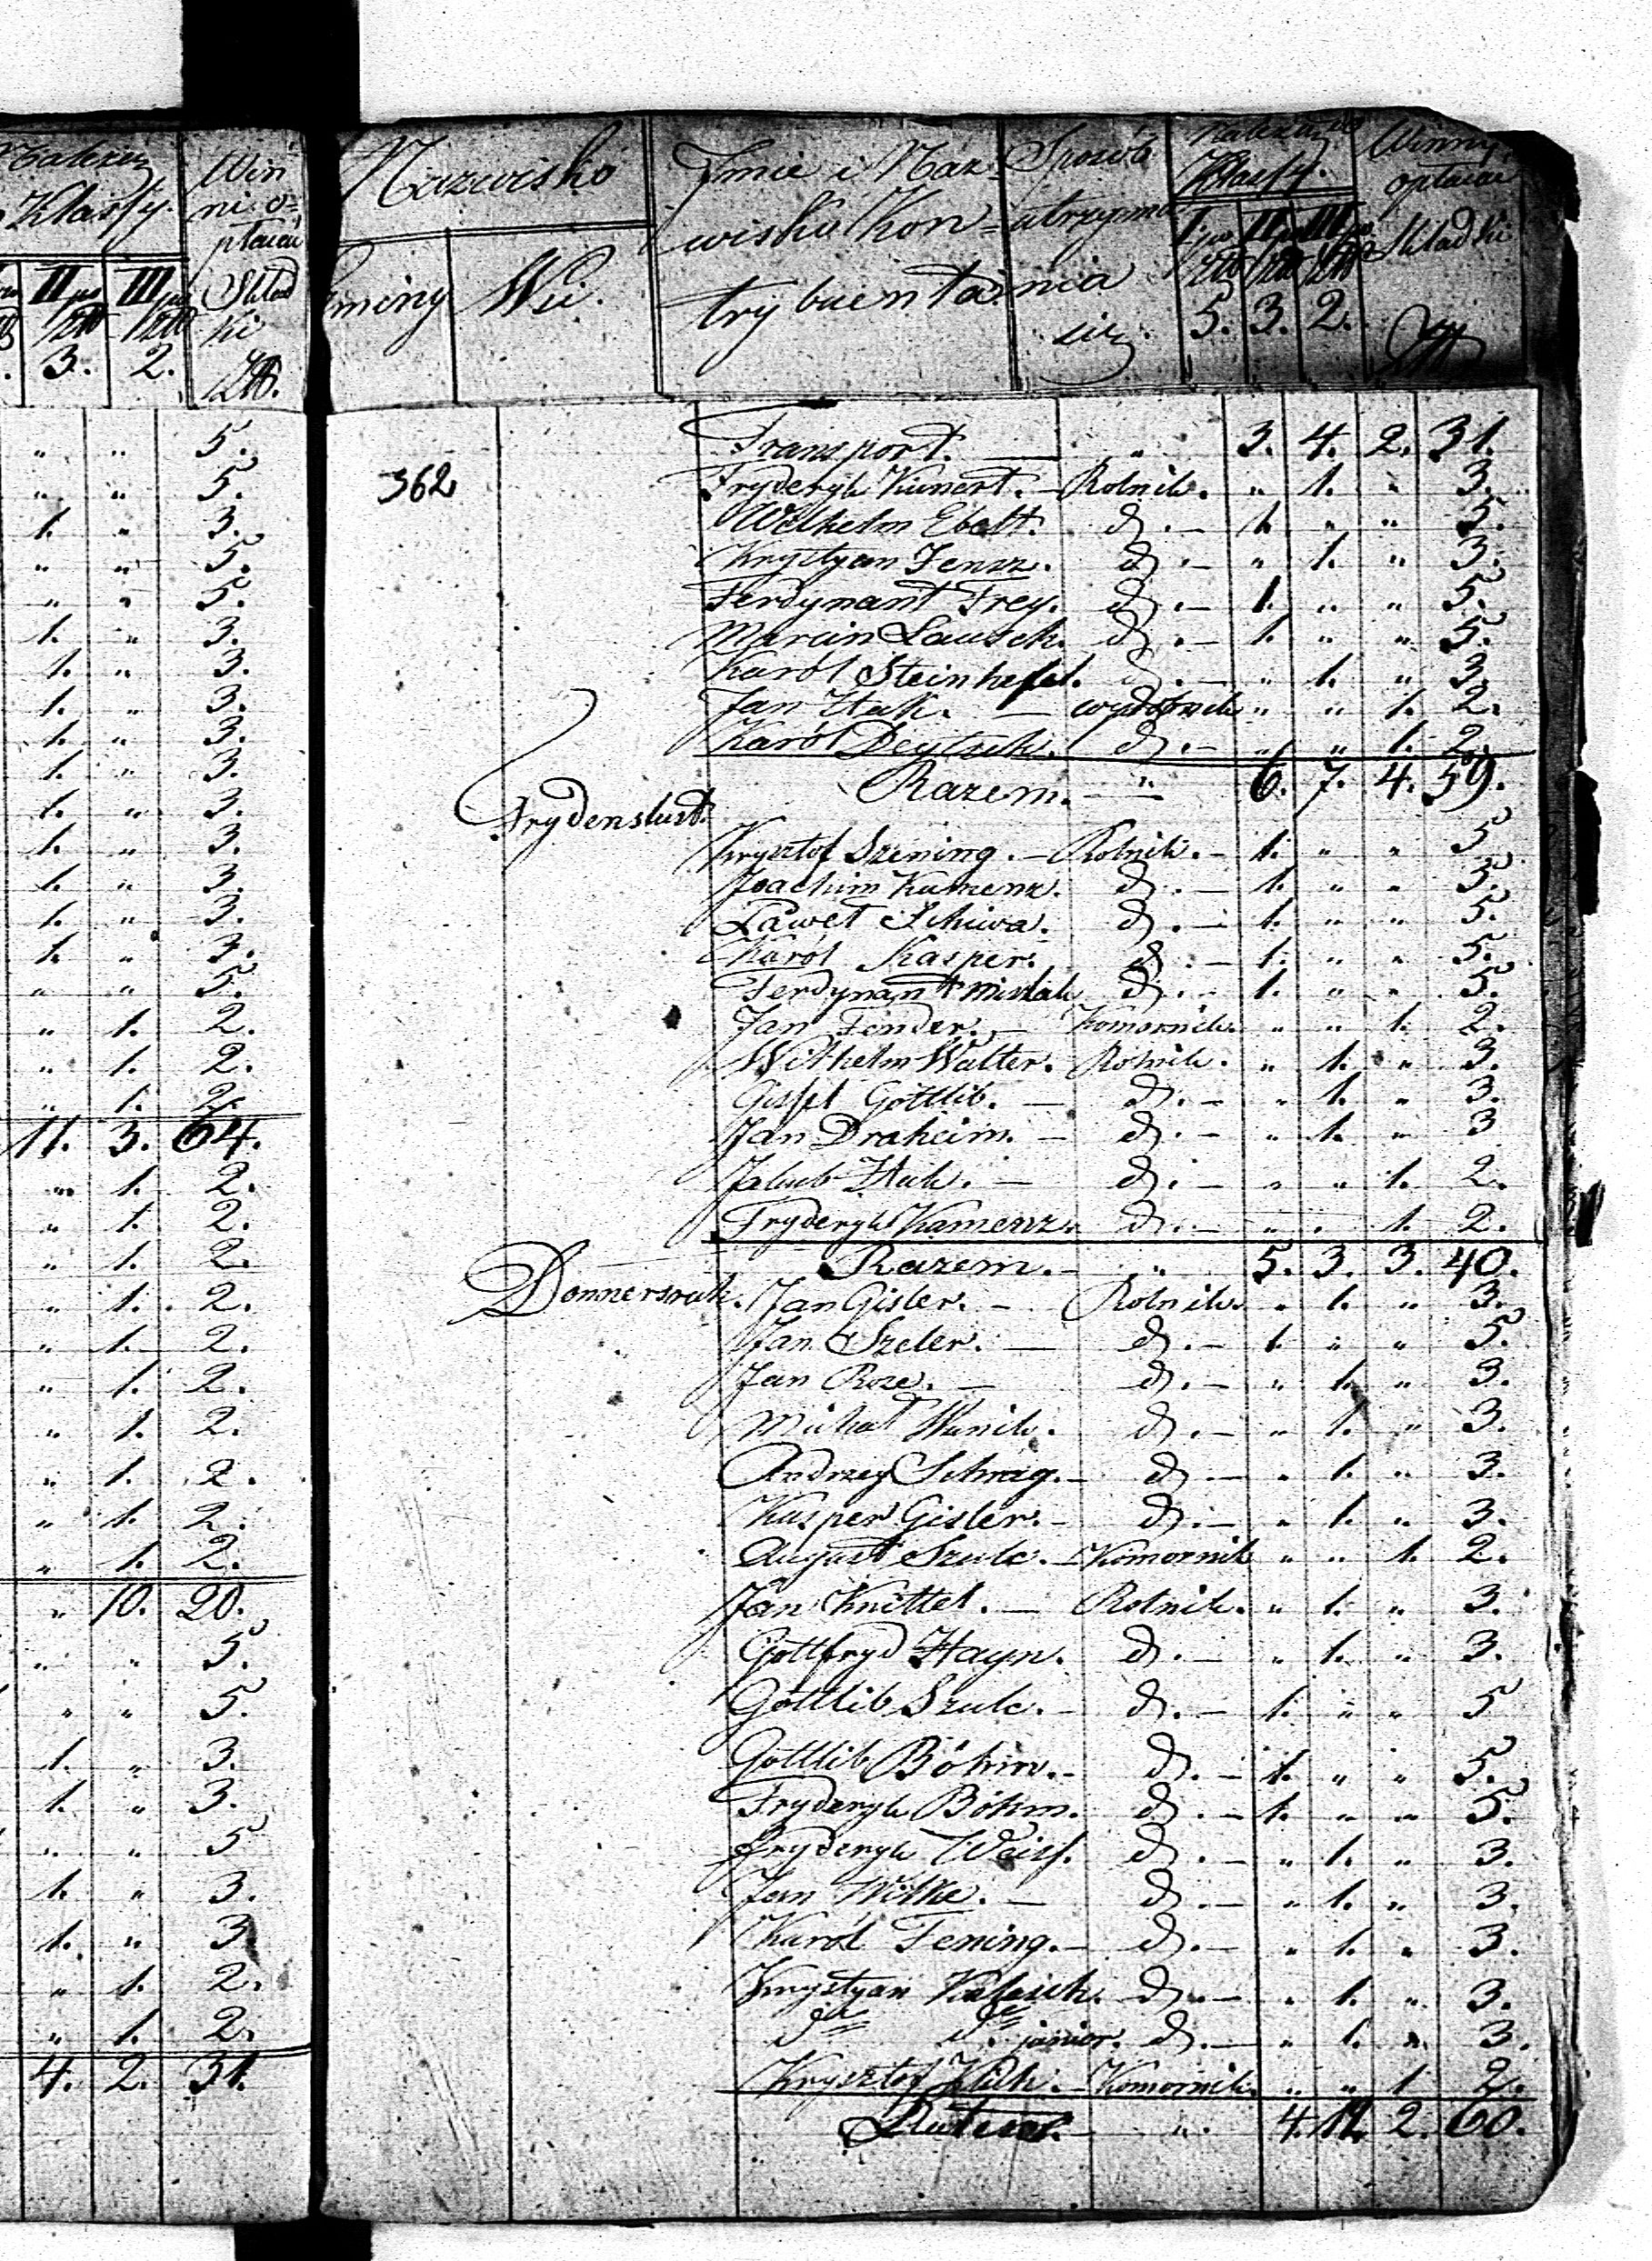 Należy
Klassy
Winni o=
płacać
Skład
ki
II III
3. 2. Złł.
" " 5.
" " 5.
1. " 3.
" " 5.
" " 5.
1. " 3.
1. " 3.
1. " 3.
1. " 3.
1. " 3.
1. " 3.
1. " 3.
1. " 3.
1. " 3.
1. " 3.
" " 5.
" 1. 2.
" 1. 2.
" 1. 2.
11. 3. 64.
" 1. 2.
" 1. 2.
" 1. 2.
" 1. 2.
" 1. 2.
" 1. 2.
" 1. 2.
" 1. 2.
" 1. 2.
" 1. 2.
" 10. 20.
" " 5.
" " 5.
1. " 3.
1. " 3.
" " 5
1. " 3.
1. " 3
" 1. 2.
" 1. 2.
4. 2. 31.
Nazwisko
Gminy Wsi.
Imie i Naz=
wisko Kon=
trybuenta
Sposób
utrzyma
nia
się
Klassy.
I II III
5. 3. 2.
Winny
opłacać
Składki
Transport. — " 3. 4. 2. 31.
362 Fryderyk Kunert. — Rolnik. " 1. " 3.
Wilhelm Ebelt. d. — 1. " " 5.
Krystyan Jenzz. d. — " 1. " 3.
Ferdynant Frey. d. — 1. " " 5.
Marcin Lausch. d. — 1. " " 5.
Karól Steinhefel. d. — " 1. " 3.
Jan Hak. — wyrobnik " " 1. 2.
Karól Deytsch. d. — " " 1. 2.
Razem. — " 6. 7. 4. 59.
Frydenslust.
Krysztof Szening. — Rolnik. — 1. " " 5
Joachim Kamenz. d. — 1. " " 5.
Paweł Schiwa. d. — 1. " " 5.
Karól Kasper. d. — 1. " " 5.
Ferdynant Mislak d. — 1. " " 5.
Jan Fender. — Komornik. " " 1. 2.
Wilhelm Walter. Rolnik. " 1. " 3.
Gissel Gottlib. — d. — " 1. " 3.
Jan Draheim. — d. — " 1. " 3
Jakub Hak. — d. — " " 1. 2.
Fryderyk Kamenz. d. — " " 1. 2.
Razem. — " 5. 3. 3. 40.
Donnersruh. Jan Gisler. — Rolnik. " 1. " 3.
Jan Szeler. — d. — 1. " " 5.
Jan Roze. — d. — " 1. " 3.
Michał Kunik. d. — " 1. " 3.
Andrzey Schrag. — d. — " 1. " 3.
Kasper Gisler. — d. — " 1. " 3.
August Szulc. — Komornik " " 1. 2.
Jan Knittel. — Rolnik. " 1. " 3.
Gottfryd Hayn. d. — " 1. " 3.
Gottlib Szulc. — d. — 1. " " 5
Gottlib Böhm. — d. — 1. " " 5.
Fryderyk Böhm. d. — 1. " " 5.
Fryderyk Weiss. d. — " 1. " 3.
Jan Wilke. — d. — " 1. " 3.
Karól Fening. — d. — " 1. " 3.
Krystyan Kalisch. d. — " 1. " 3.
dto dto junior. d. — " 1. " 3.
Krysztof Klich. — Komornik. " " 1 2.
" 4. 12. 2. 60.